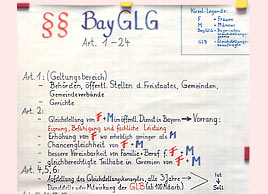 §§ BayGLG
Art. 1-24
Kürzel-Legende:
F = Frauen
M = Männer
BayGlG =
GLB =
Art. 1: (Geltungsbereich)
- Behörden, öffentl. Stellen d. Freistaates, Gemeinden,
Gemeindeverbände
- Gerichte
Art. 2:
- Gleichstellung von F+M im öffentl. Dienst in Bayern → Vorrang:
Eignung, Befähigung und fachliche Leistung
- Erhöhung von F wo erheblich weniger als M
- Chancengleichheit von F+M
- bessere Vereinbark. von Familie + Beruf f. F+M
- gleichberechtigte Teilhabe in Gremien von F+M
Art. 4, 5, 6:
- Aufstellung des Gleichstellungskonzeptes, alle 3 Jahre
- Dienststelle mit Mitwirkung der GLB (ab 100 Mitarb.)
Ist
&
Soll